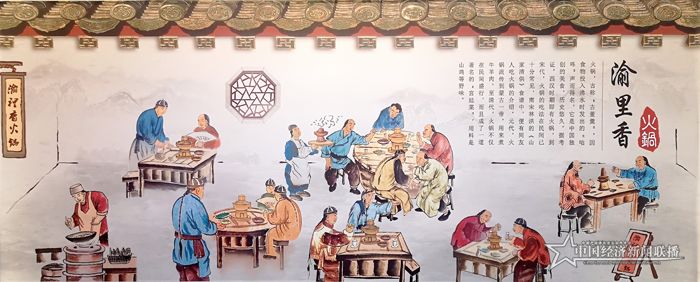 渝里香
火鍋
火锅，古称“古董羹”，因
食物投入沸水时发出的“咕
咚”声而得名，它是中国独
创的美食，历史悠久。据考
证，西汉时期即有火锅，到
宋代，火锅的吃法在民间已
十分常见，南宋林洪的《山
家清供》食谱中，便有同友
人吃火锅的介绍。元代，火
锅流传到蒙古一带，用来煮
牛羊肉。至清代，火锅不仅
在民间盛行，而且成了一道
著名的“宫廷菜”，用料是
山鸡等野味。
渝里香火锅
中国经济新闻联播